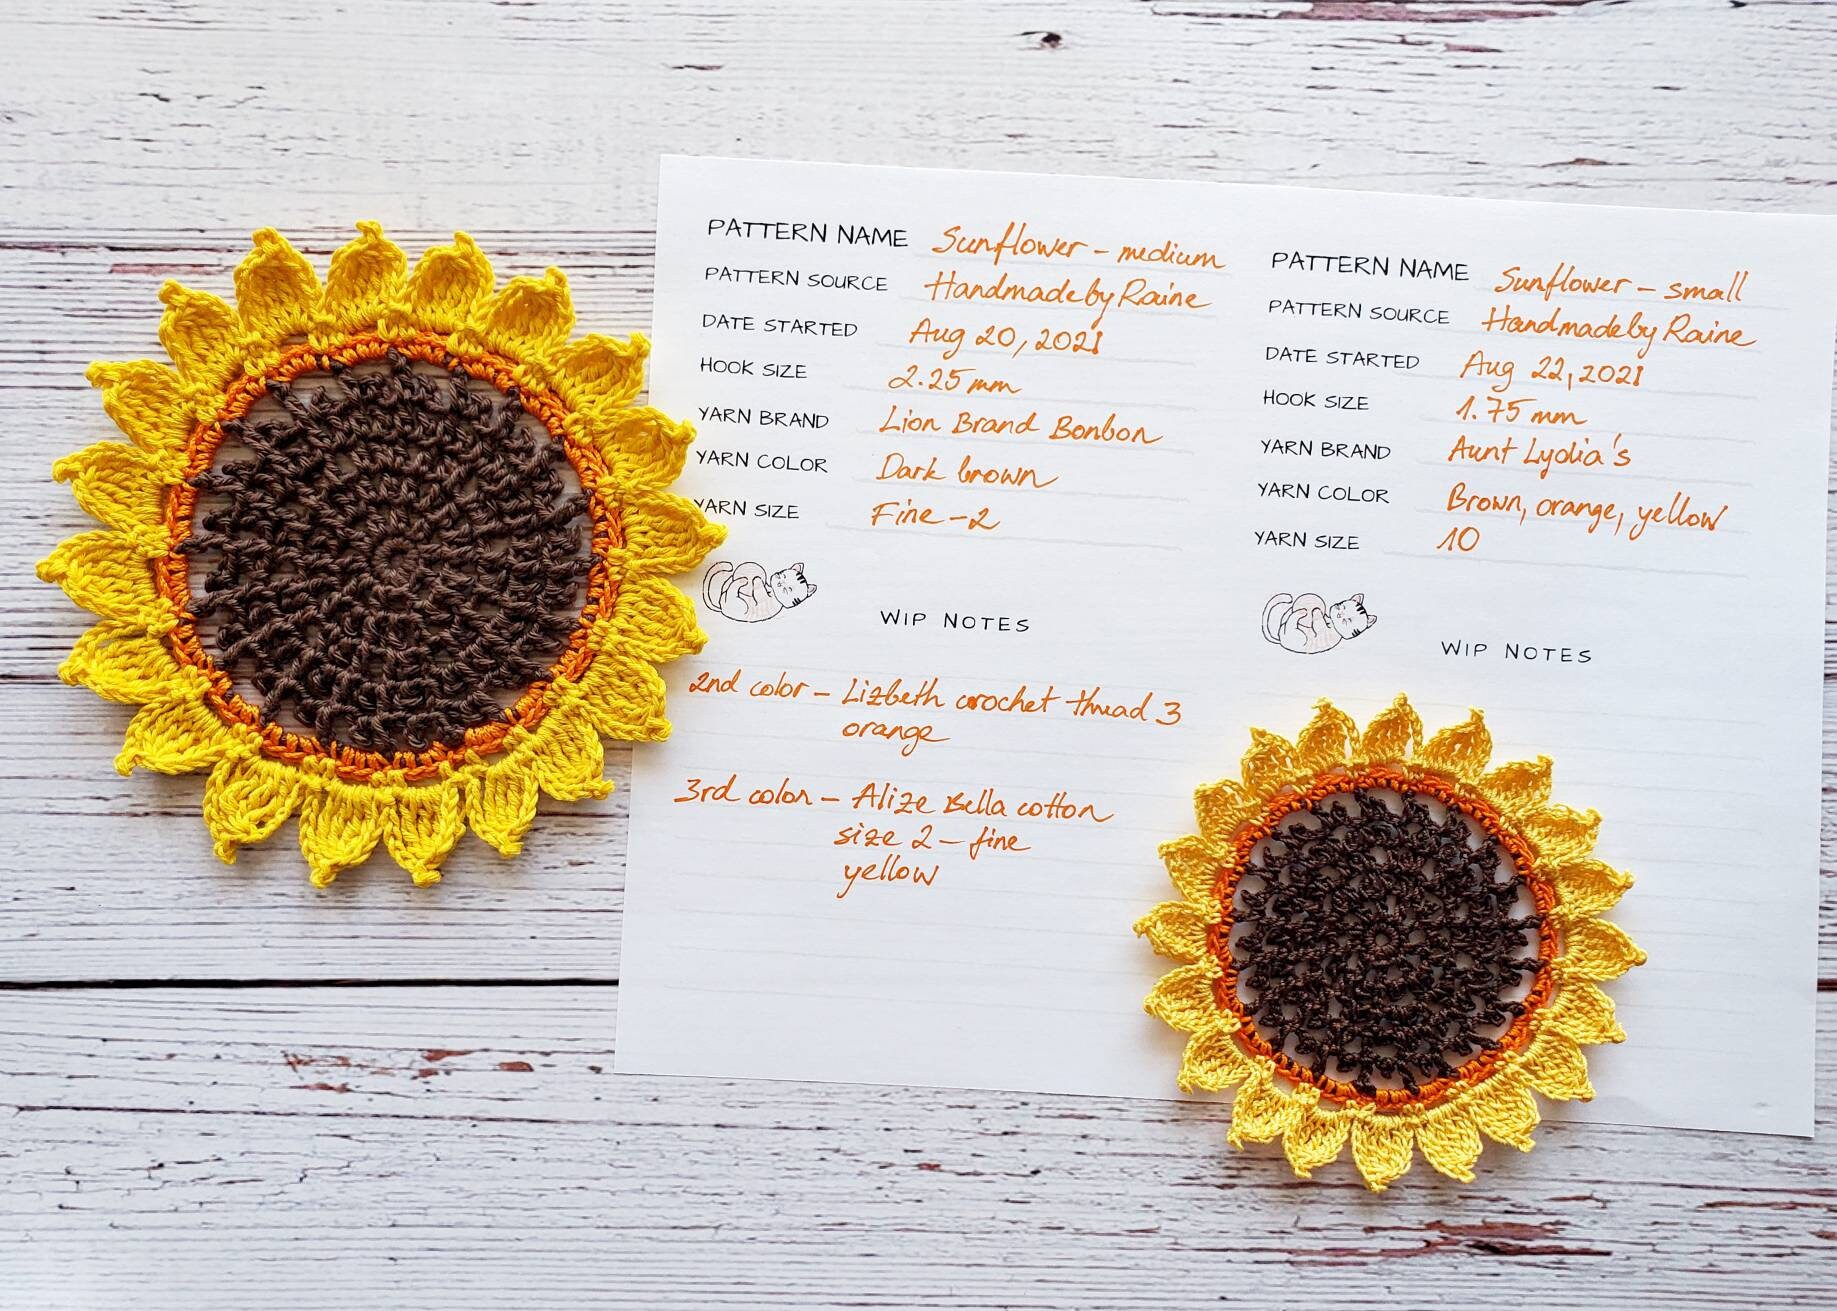 PATTERN NAME Sunflower - medium
PATTERN SOURCE HandmadebyRaine
DATE STARTED Aug 20, 2021
HOOK SIZE 2.25 mm
YARN BRAND Lion Brand Bonbon
YARN COLOR Dark brown
YARN SIZE Fine - 2
WIP NOTES
2nd color - Lizbeth crochet thread 3
orange
3rd color - Alize Bella cotton
size 2 - fine
yellow
PATTERN NAME Sunflower - small
PATTERN SOURCE HandmadebyRaine
DATE STARTED Aug 22, 2021
HOOK SIZE 1.75 mm
YARN BRAND Aunt Lydia's
YARN COLOR Brown, orange, yellow
YARN SIZE 10
WIP NOTES